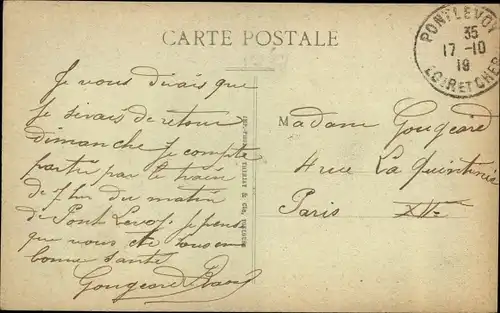 CARTE POSTALE
PONTLEVOY
35
17-10
19
LOIR ET CHER
Je vous dirais que
je serais de retour
dimanche je compte
partir par le train
du matin
de Pont Levoy je pense
que vous ete tous en
bonne santé
Gougeard
Madame Gougeard
4 rue La Quintinie
Paris XVe